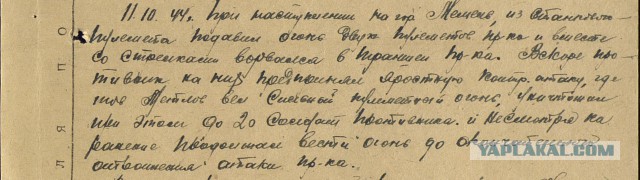 11.10.44г. При наступлении на гор. Мемель, из станкового
пулемета подавил огонь двух пулеметов пр-ка и вместе
со стрелками ворвался в траншеи пр-ка. Вскоре про-
тивник на них предпринял яростную контр. атаку, где
тов Метлов вел сильный пулеметный огонь, уничтожил
при этом до 20 солдат противника. и несмотря на
ранение продолжал вести огонь до окончательного
отвоинения атаки пр-ка.
П
О
Л
Я
YAPLAKAL.COM